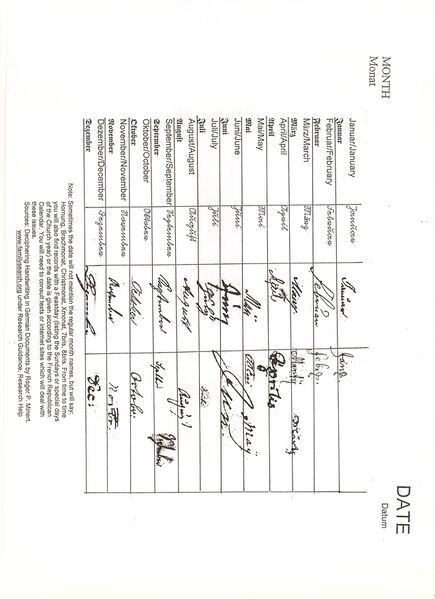 DATE
Datum
MONTH
Monat
Januar/January Januar
Januar
Februar/February Februar
Februar
März/March März
März
April/April April April Aprilis
April
Mai/May Mai May May
Mai
Juni/June Juni
Juni
Juli/July Juli Juli
Juli
August/August August August
August
September/September September September
September
Oktober/October Oktober October
October
November/November November November
November
Dezember/December Dezember Dec:
Dezember
Note: Sometimes the date will not mention the regular month names, but will say:
Hornung, Brachmonat, Christmonat, Xmonat, 7bris, 8bris. From time to time
you will also find records with a Feastday (listing the Sundays or special days
of the Church year) or the date is given according to the French Republican
Calendar. You will need to consult texts or internet sites which will deal with
these issues.
Sources: Deciphering Handwriting In German Documents by Roger P. Minert,
www.familysearch.org under Research Guidance, Research Help